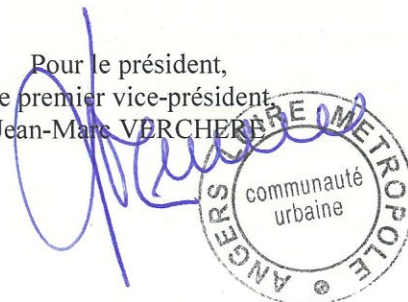 Pour le président,
e premier vice-président,
Jean-Marc VERCHERE
ANGERS LOIRE METROPOLE
communauté
urbaine